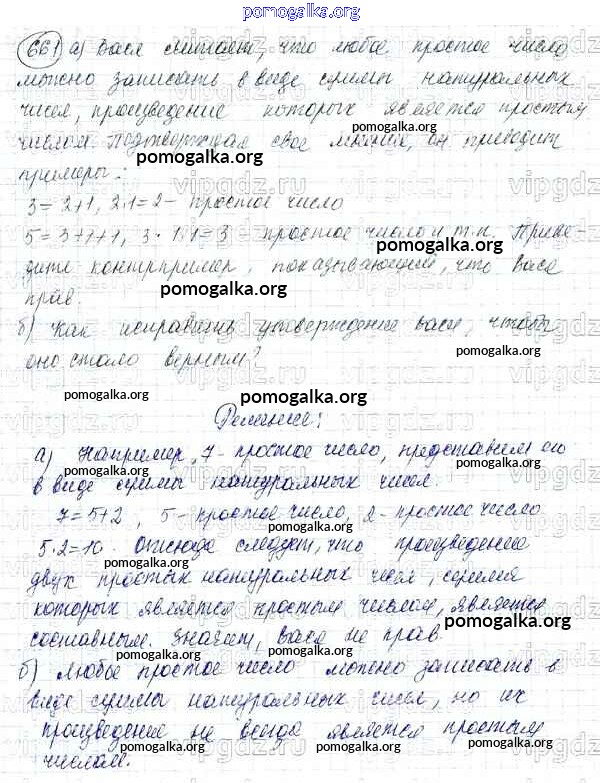 pomogalka.org
661 а) Вася считает, что любое простое число
можно записать в виде суммы натуральных
чисел, произведение которых является простым
числом. Подтверждая свое мнение, он приводит
pomogalka.org
примеры:
3 = 2+1, 2·1=2 - простое число
5 = 3+1+1, 3·1·1=3 - простое число и т.п. Приве-
pomogalka.org
дите контрпример, показывающий, что Вася
прав.
pomogalka.org
б) Как исправить утверждение Васи, чтобы
оно стало верным?
pomogalka.org
pomogalka.org
Решение:
а) Например, 7 - простое число, представим его
в виде суммы натуральных чисел.
pomogalka.org
7 = 5+2, 5 - простое число, 2 - простое число
pomogalka.org
5·2=10. Отсюда следует, что произведение
pomogalka.org
двух простых натуральных чисел, сумма
которых является простым числом, является
pomogalka.org
составным. Значит, Вася не прав.
pomogalka.org
б) Любое простое число можно записать в
виде суммы натуральных чисел, но их
pomogalka.org
произведение не всегда является простым
числом.
pomogalka.org
pomogalka.org
vipgdz.ru